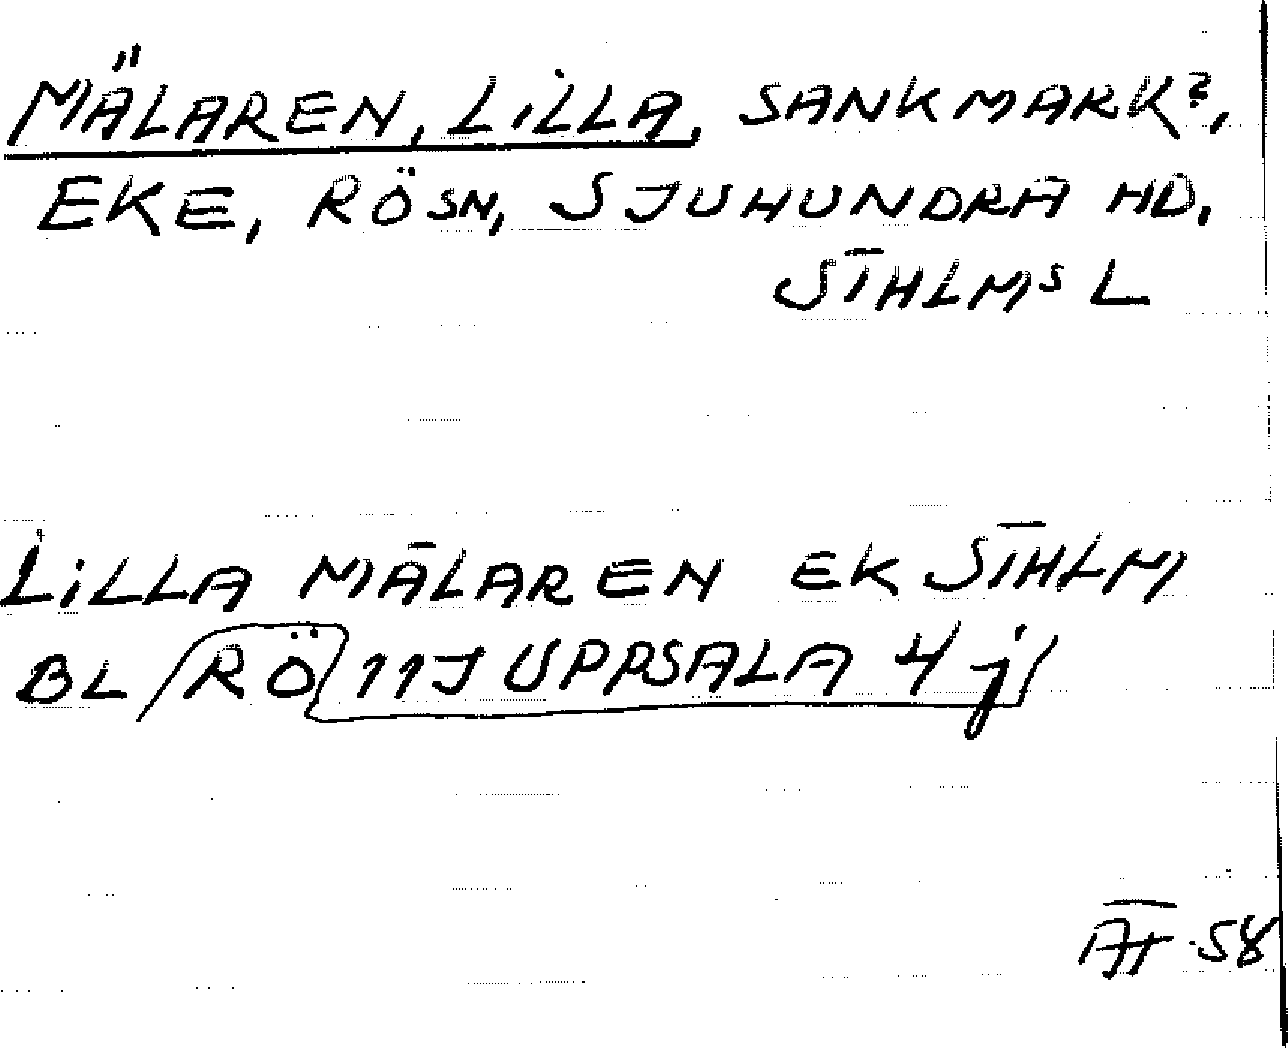 MÄLAREN, LILLA, SANKMARK?,
EKE, RÖ SN, SJUHUNDRA HD,
STHLMS L
LILLA MÄLAREN EK STHLM
BL RÖ 11J UPPSALA 4j
ÅT 58